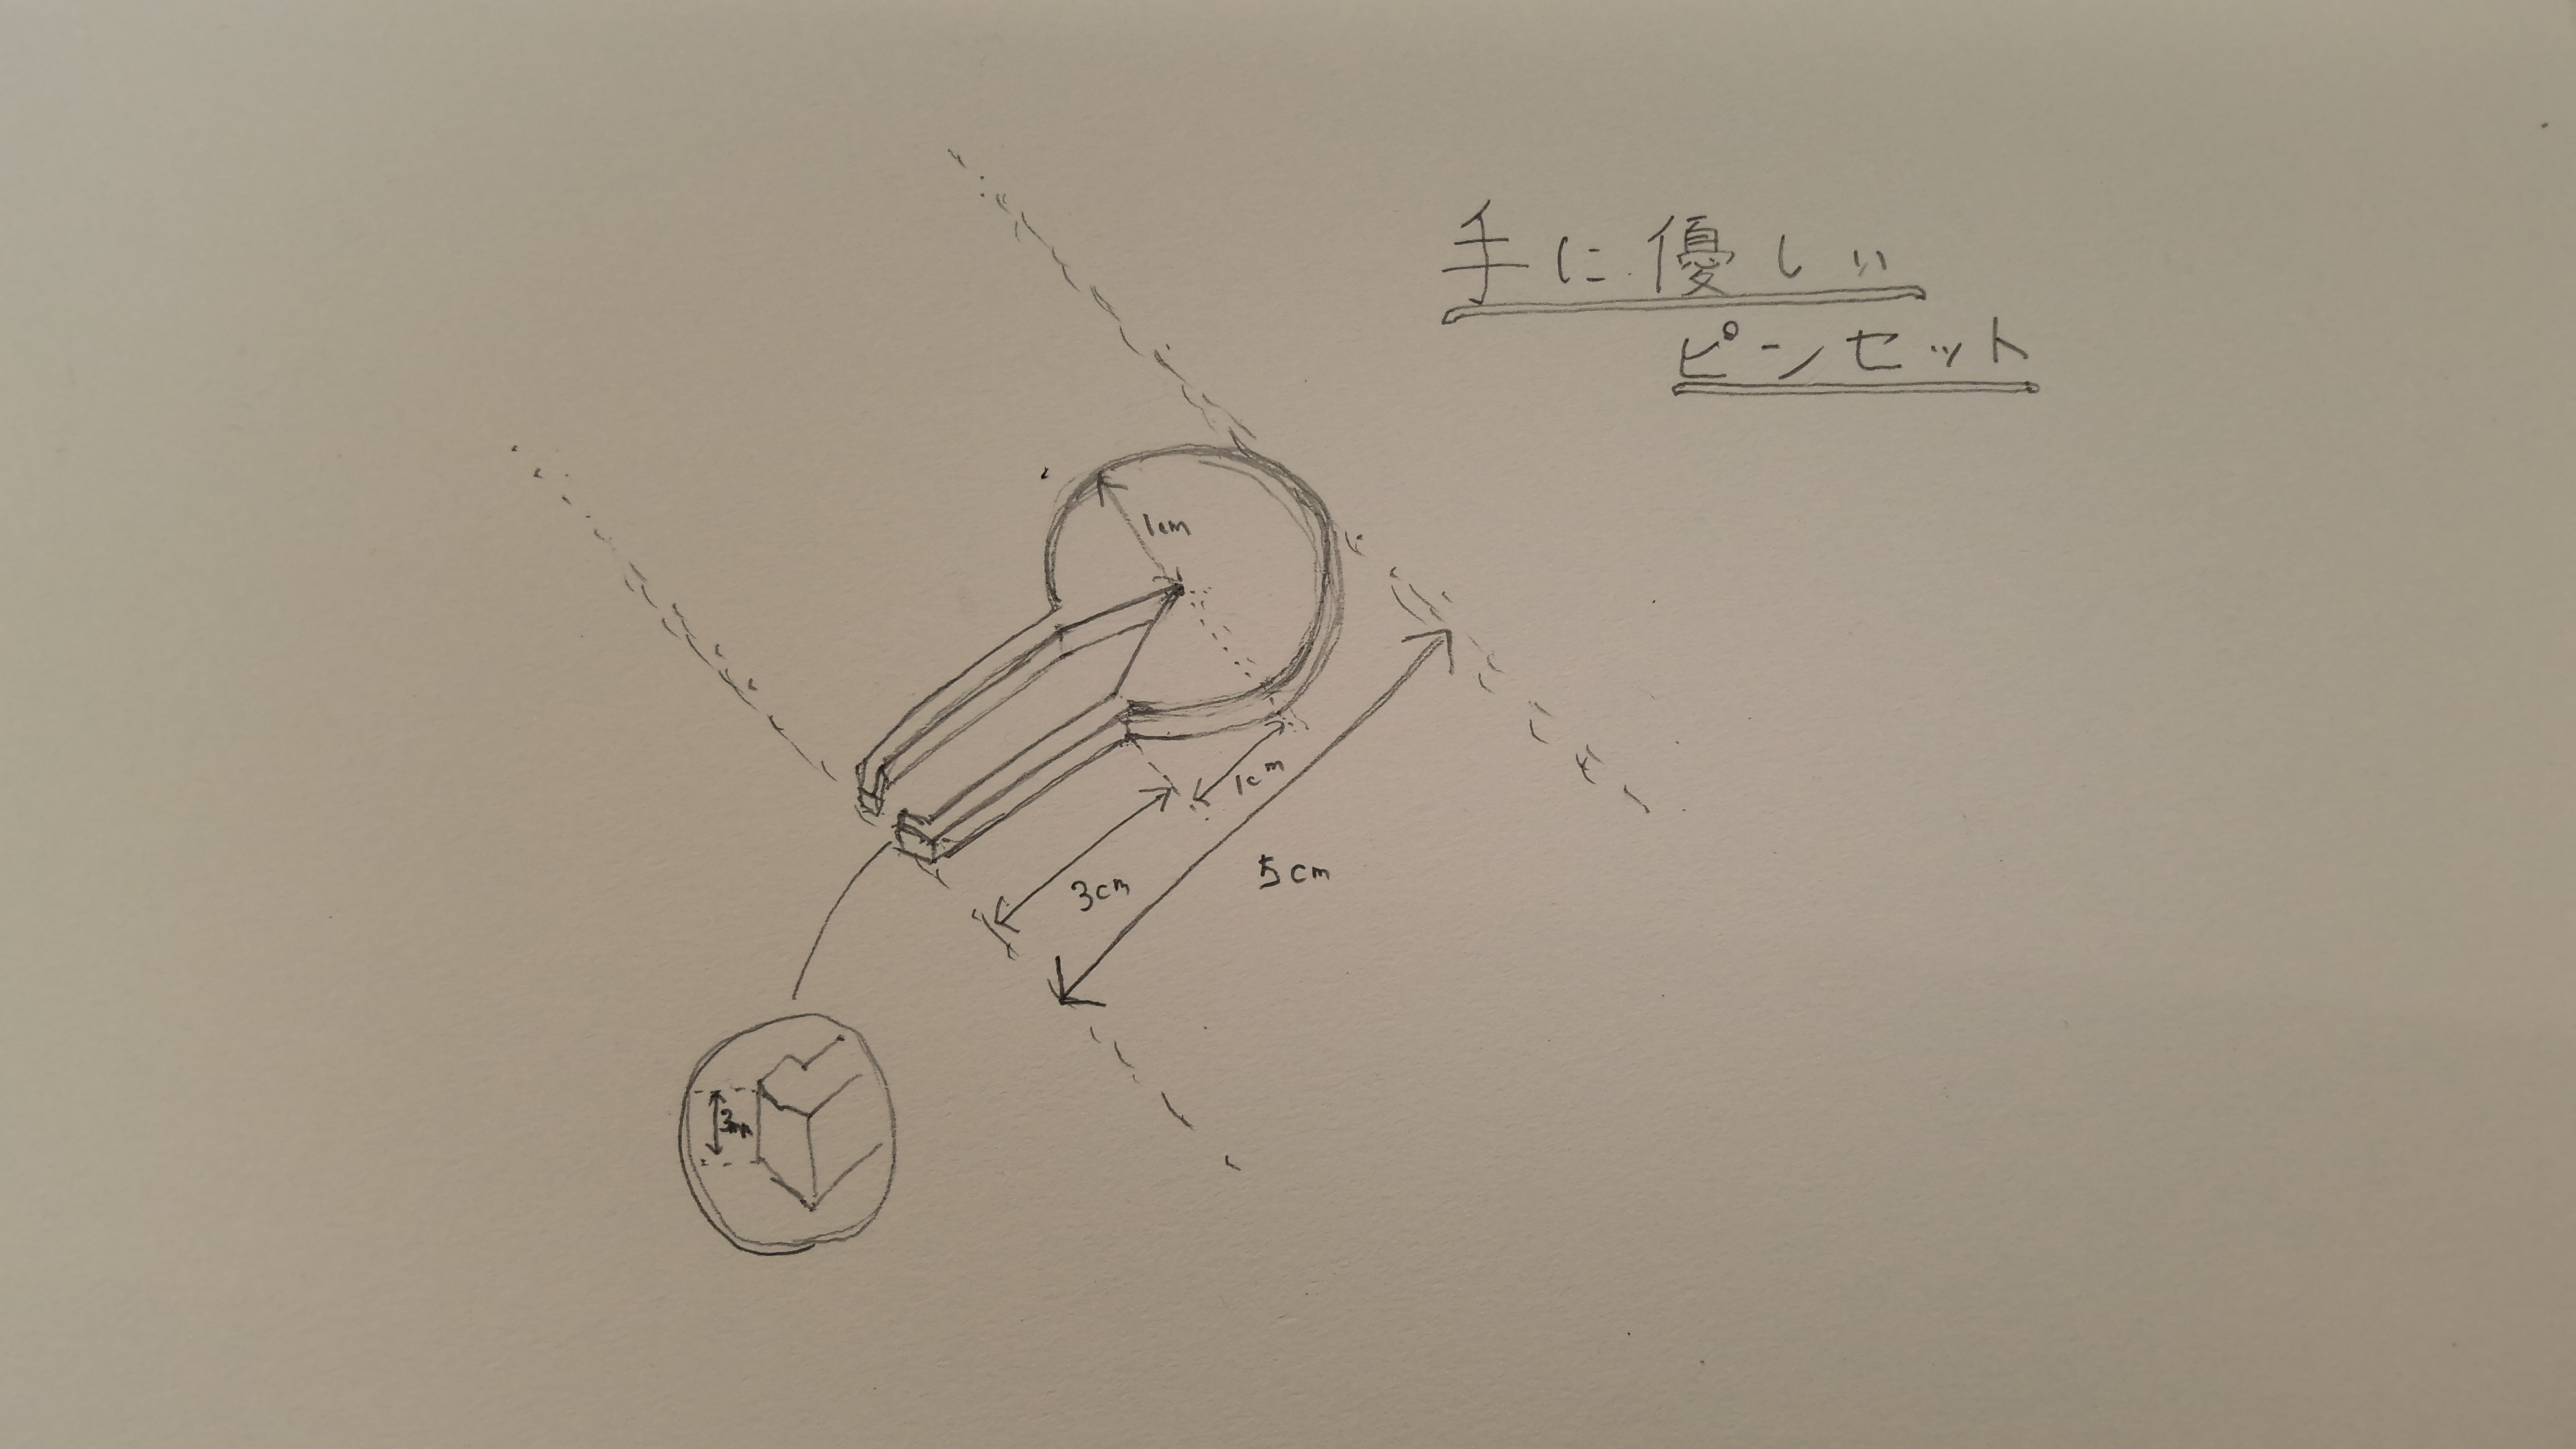 手に優しい
ピンセット
1cm
1cm
3cm
5cm